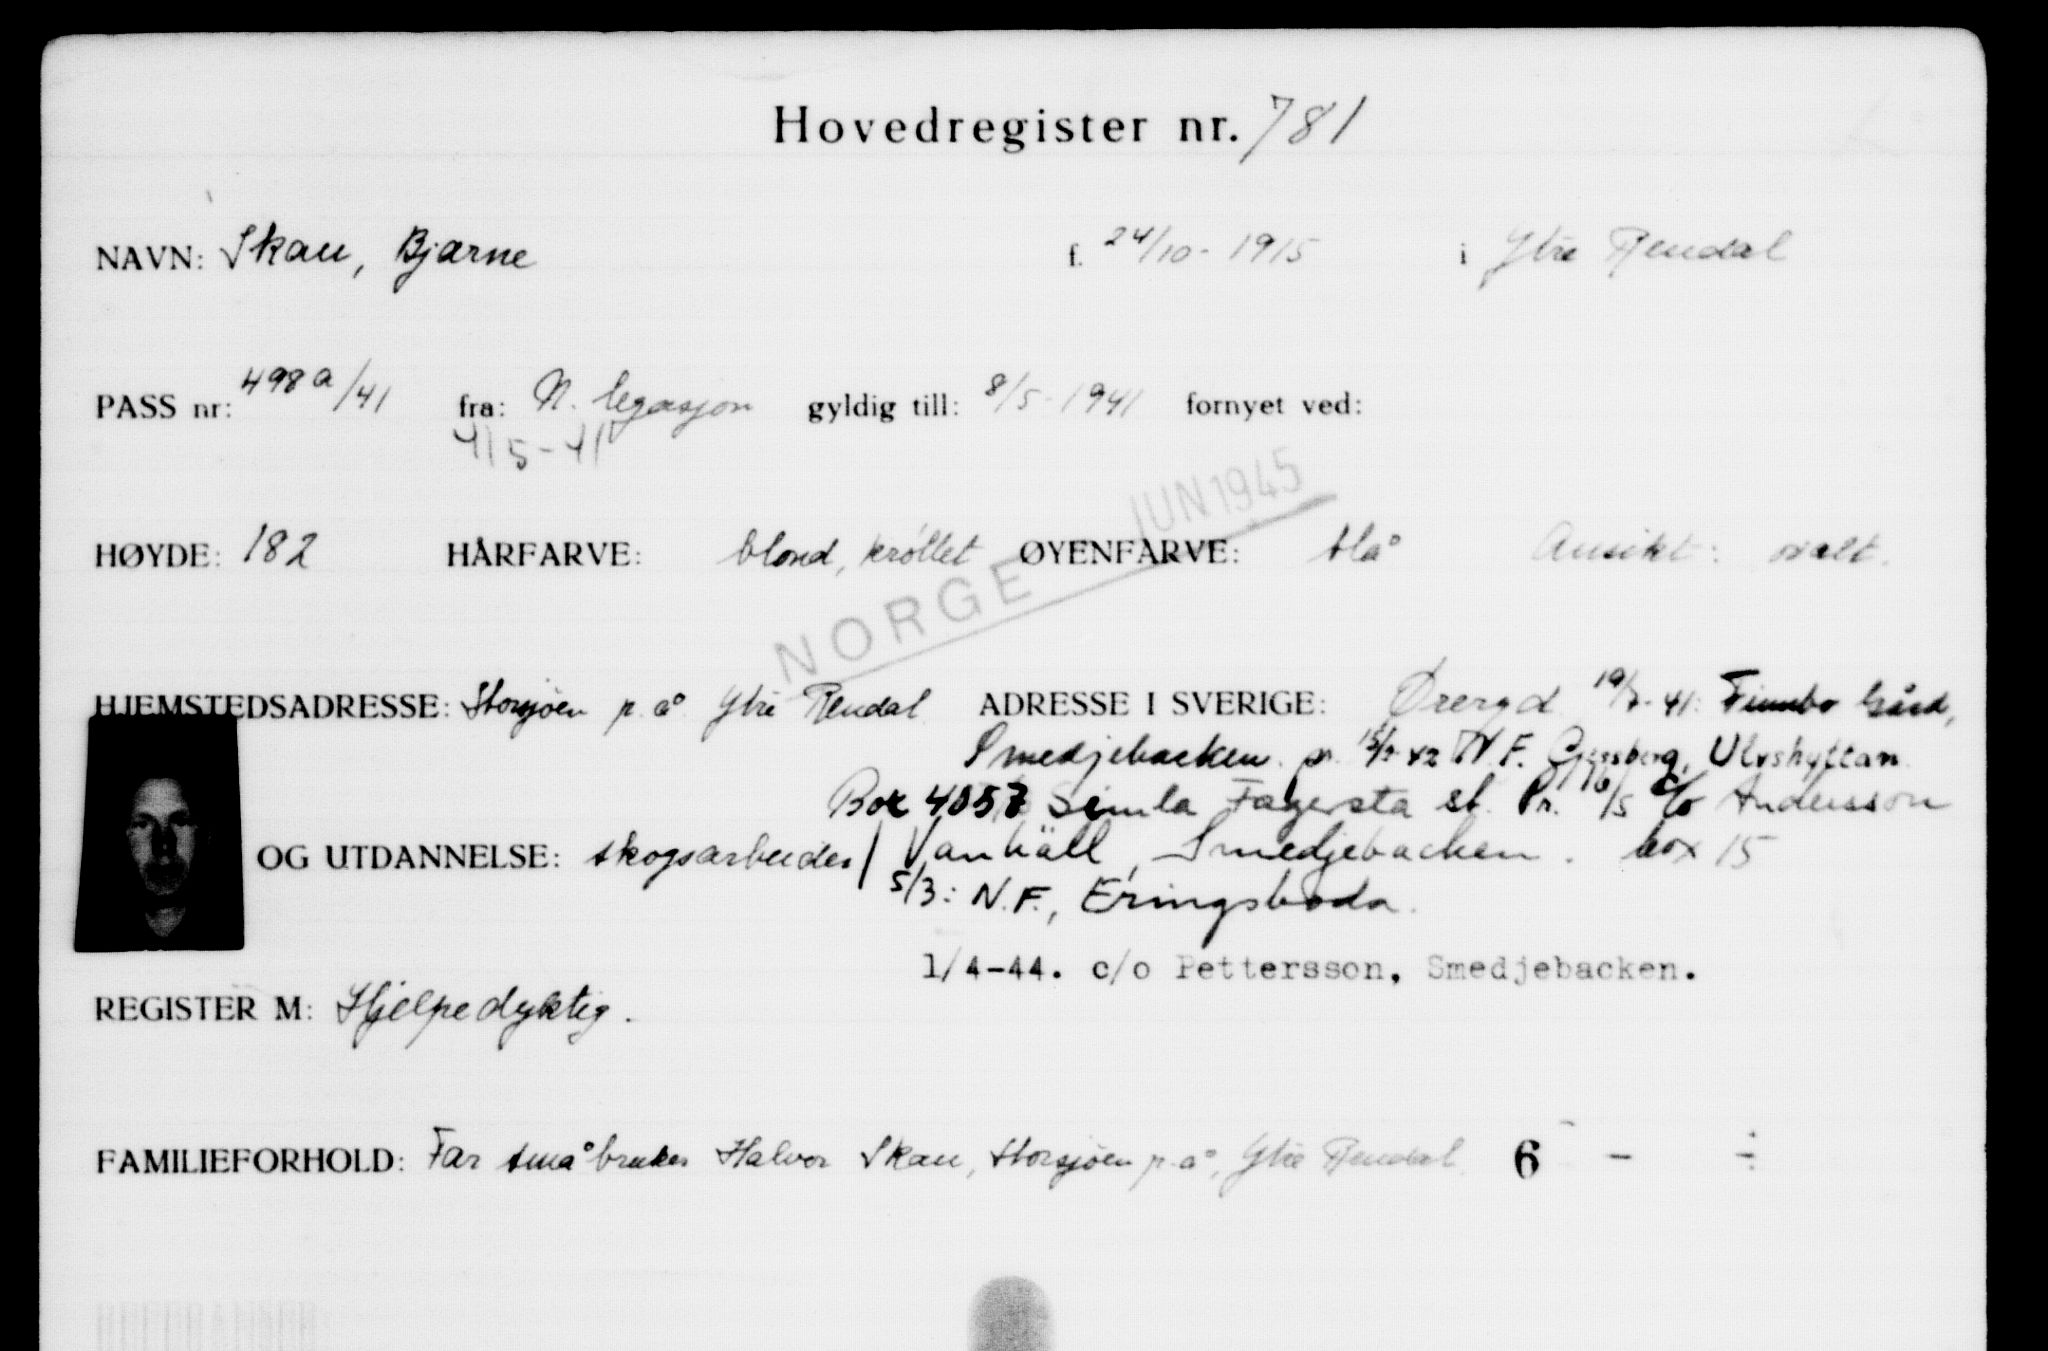 Hovedregister nr. 781
NAVN: Skau, Bjarne f. 24/10-1915 i Ytre Rendal
PASS nr: 498a/41 fra: N. legasjon gyldig till: 8/5-1941 fornyet ved:
4/5-41
JUN 1945
HØYDE: 182 HÅRFARVE: blond, krøllet ØYENFARVE: blå Ansikt: ovalt.
NORGE
HJEMSTEDSADRESSE: Storsjøen p. å. Ytre Rendal ADRESSE I SVERIGE: Øreryd 19/7-41: Finnbo Gård,
Smedjebacken. pr. 15/2-42 N.F. Gjersberg, Ulvshyttan
Box 4057 Semla Fagersta st. Pr. 16/5 c/o Andersson
OG UTDANNELSE: skogsarbeider/ Vanhäll, Smedjebacken. box 15
5/3: N.F., Eringsboda.
1/4-44. c/o Pettersson, Smedjebacken.
REGISTER M: Hjelpedyktig.
FAMILIEFORHOLD: Far småbruker Halvor Skau, Storsjøen p. å., Ytre Rendal 6 - ÷